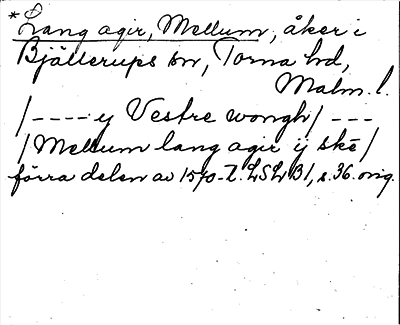 *Lang agir, Mellum, åker i
Bjällerups sn, Torna hd,
Malm. l.
/ ---- y Vestre wongh / ---
/ Mellum lang agir ij skē /
förra delen av 1570-t. LSLB1, s. 36. orig.